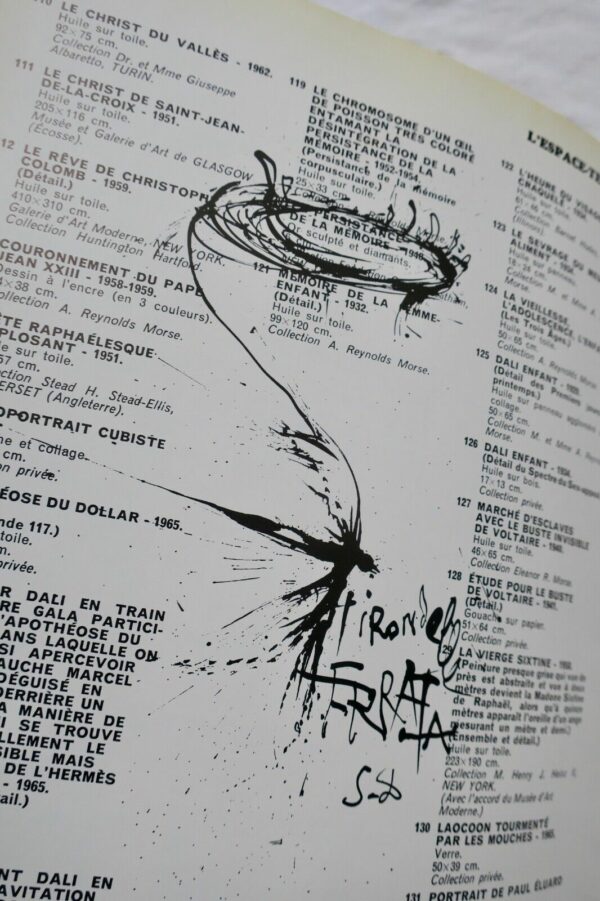 110 LE CHRIST DU VALLÈS - 1962.
Huile sur toile.
92×75 cm.
Collection Dr. et Mme Giuseppe
Albaretto, TURIN.
111 LE CHRIST DE SAINT-JEAN-
DE-LA-CROIX - 1951.
Huile sur toile.
205×116 cm.
Musée et Galerie d'Art de GLASGOW
(Écosse).
12 LE RÊVE DE CHRISTOPH
COLOMB - 1959.
(Détail.)
Huile sur toile.
410×310 cm.
Galerie d'Art Moderne, NEW YORK.
Collection Huntington Hartford.
COURONNEMENT DU PAPE
JEAN XXIII - 1958-1959.
Dessin à l'encre (en 3 couleurs).
×38 cm.
Collection A. Reynolds Morse.
TE RAPHAÉLESQUE
PLOSANT - 1951.
Huile sur toile.
57 cm.
Collection Stead H. Stead-Ellis,
ERSET (Angleterre).
OPORTRAIT CUBISTE
ne et collage.
cm.
on privée.
ÉOSE DU DOLLAR - 1965.
nde 117.)
r toile.
cm.
n privée.
R DALI EN TRAIN
RE GALA PARTICI-
'APOTHÉOSE DU
ANS LAQUELLE ON
SI APERCEVOIR
AUCHE MARCEL
DÉGUISÉ EN
DERRIÈRE UN
A MANIÈRE DE
I SE TROUVE
LLEMENT LE
SIBLE MAIS
DE L'HERMÈS
- 1965.
ail.)
NT DALI EN
AVITATION
119 LE CHROMOSOME D'UN ŒIL
DE POISSON TRÈS COLORÉ
ENTAMANT LA
DÉSINTÉGRATION DE LA
PERSISTANCE DE LA
MÉMOIRE - 1952-1954.
(Persistance de la mémoire
corpusculaire.)
Huile sur toile.
25×33 cm.
PERSISTANCE
DE LA MÉMOIRE
Or sculpté et diamants.
121 MÉMOIRE DE LA FEMME-
ENFANT - 1932.
(Détail.)
Huile sur toile.
99×120 cm.
Collection A. Reynolds Morse.
ERRATA
S-D
L'ESPACE-TE
122 L'HEURE DU VISAG
CRAQUELÉ
Huile sur toile.
123 LE SEVRAGE DU MEUB
ALIMENT
124 LA VIEILLESSE,
L'ADOLESCENCE, L'ENFA
(Les Trois Âges.)
Huile sur toile.
50×65 cm.
Collection A. Reynolds Morse.
125 DALI ENFANT
(Détail des Premiers jours
printemps.)
Huile sur panneau
collage.
50×65 cm.
Collection M. et Mme A. Reyn
Morse.
126 DALI ENFANT - 1934.
(Détail du Spectre du Sex-appeal
Huile sur bois.
17×13 cm.
Collection privée.
127 MARCHÉ D'ESCLAVES
AVEC LE BUSTE INVISIBLE
DE VOLTAIRE - 1940.
Huile sur toile.
46×65 cm.
Collection Eleanor R. Morse.
128 ÉTUDE POUR LE BUSTE
DE VOLTAIRE - 1941.
(Détail.)
Gouache sur papier.
51×64 cm.
Collection privée.
29 LA VIERGE SIXTINE
(Peinture presque grise qui vue de
près est abstraite et vue à deux
mètres devient la Madone Sixtine
de Raphaël, alors qu'à quinze
mètres apparaît l'oreille d'un ange
mesurant un mètre et demi.)
(Ensemble et détail.)
Huile sur toile.
223×190 cm.
Collection M. Henry J. Heinz II,
NEW YORK.
(Avec l'accord du Musée d'Art
Moderne.)
130 LAOCOON TOURMENTÉ
PAR LES MOUCHES - 1965.
Verre.
50×39 cm.
Collection privée.
131 PORTRAIT DE PAUL ÉLUARD